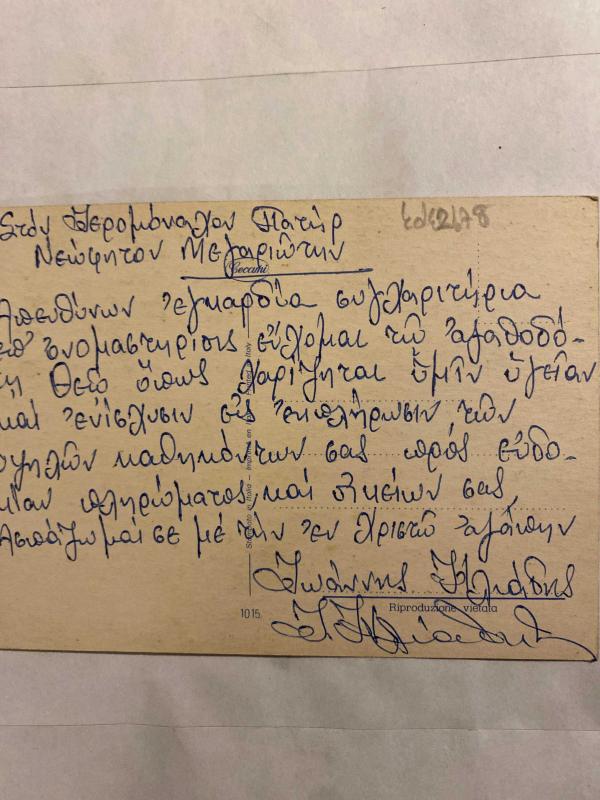 Στόν Ἱερομόναχον Πατήρ
Νεόφητον Μεγαριώτην
Cecami
Ἀπευθύνων ἐγκαρδία συγχαρητήρια
ἐπ' ὀνομαστηρίοις εὔχομαι τῷ ἀγαθοδό-
τῃ Θεῷ ὅπως χαρίζηται ὑμῖν ὑγείαν
καί ἐνίσχυσιν εἰς ἐκπλήρωσιν τῶν
ὑψηλῶν καθηκόντων σας πρός εὐδο-
κίαν πληρώματος καί οἰκείων σας
Ἀσπάζωμαι σε μέ τήν ἐν Χριστῷ ἀγάπην
Ἰωάννης Ἠλιάδης
1015
Riproduzione vietata